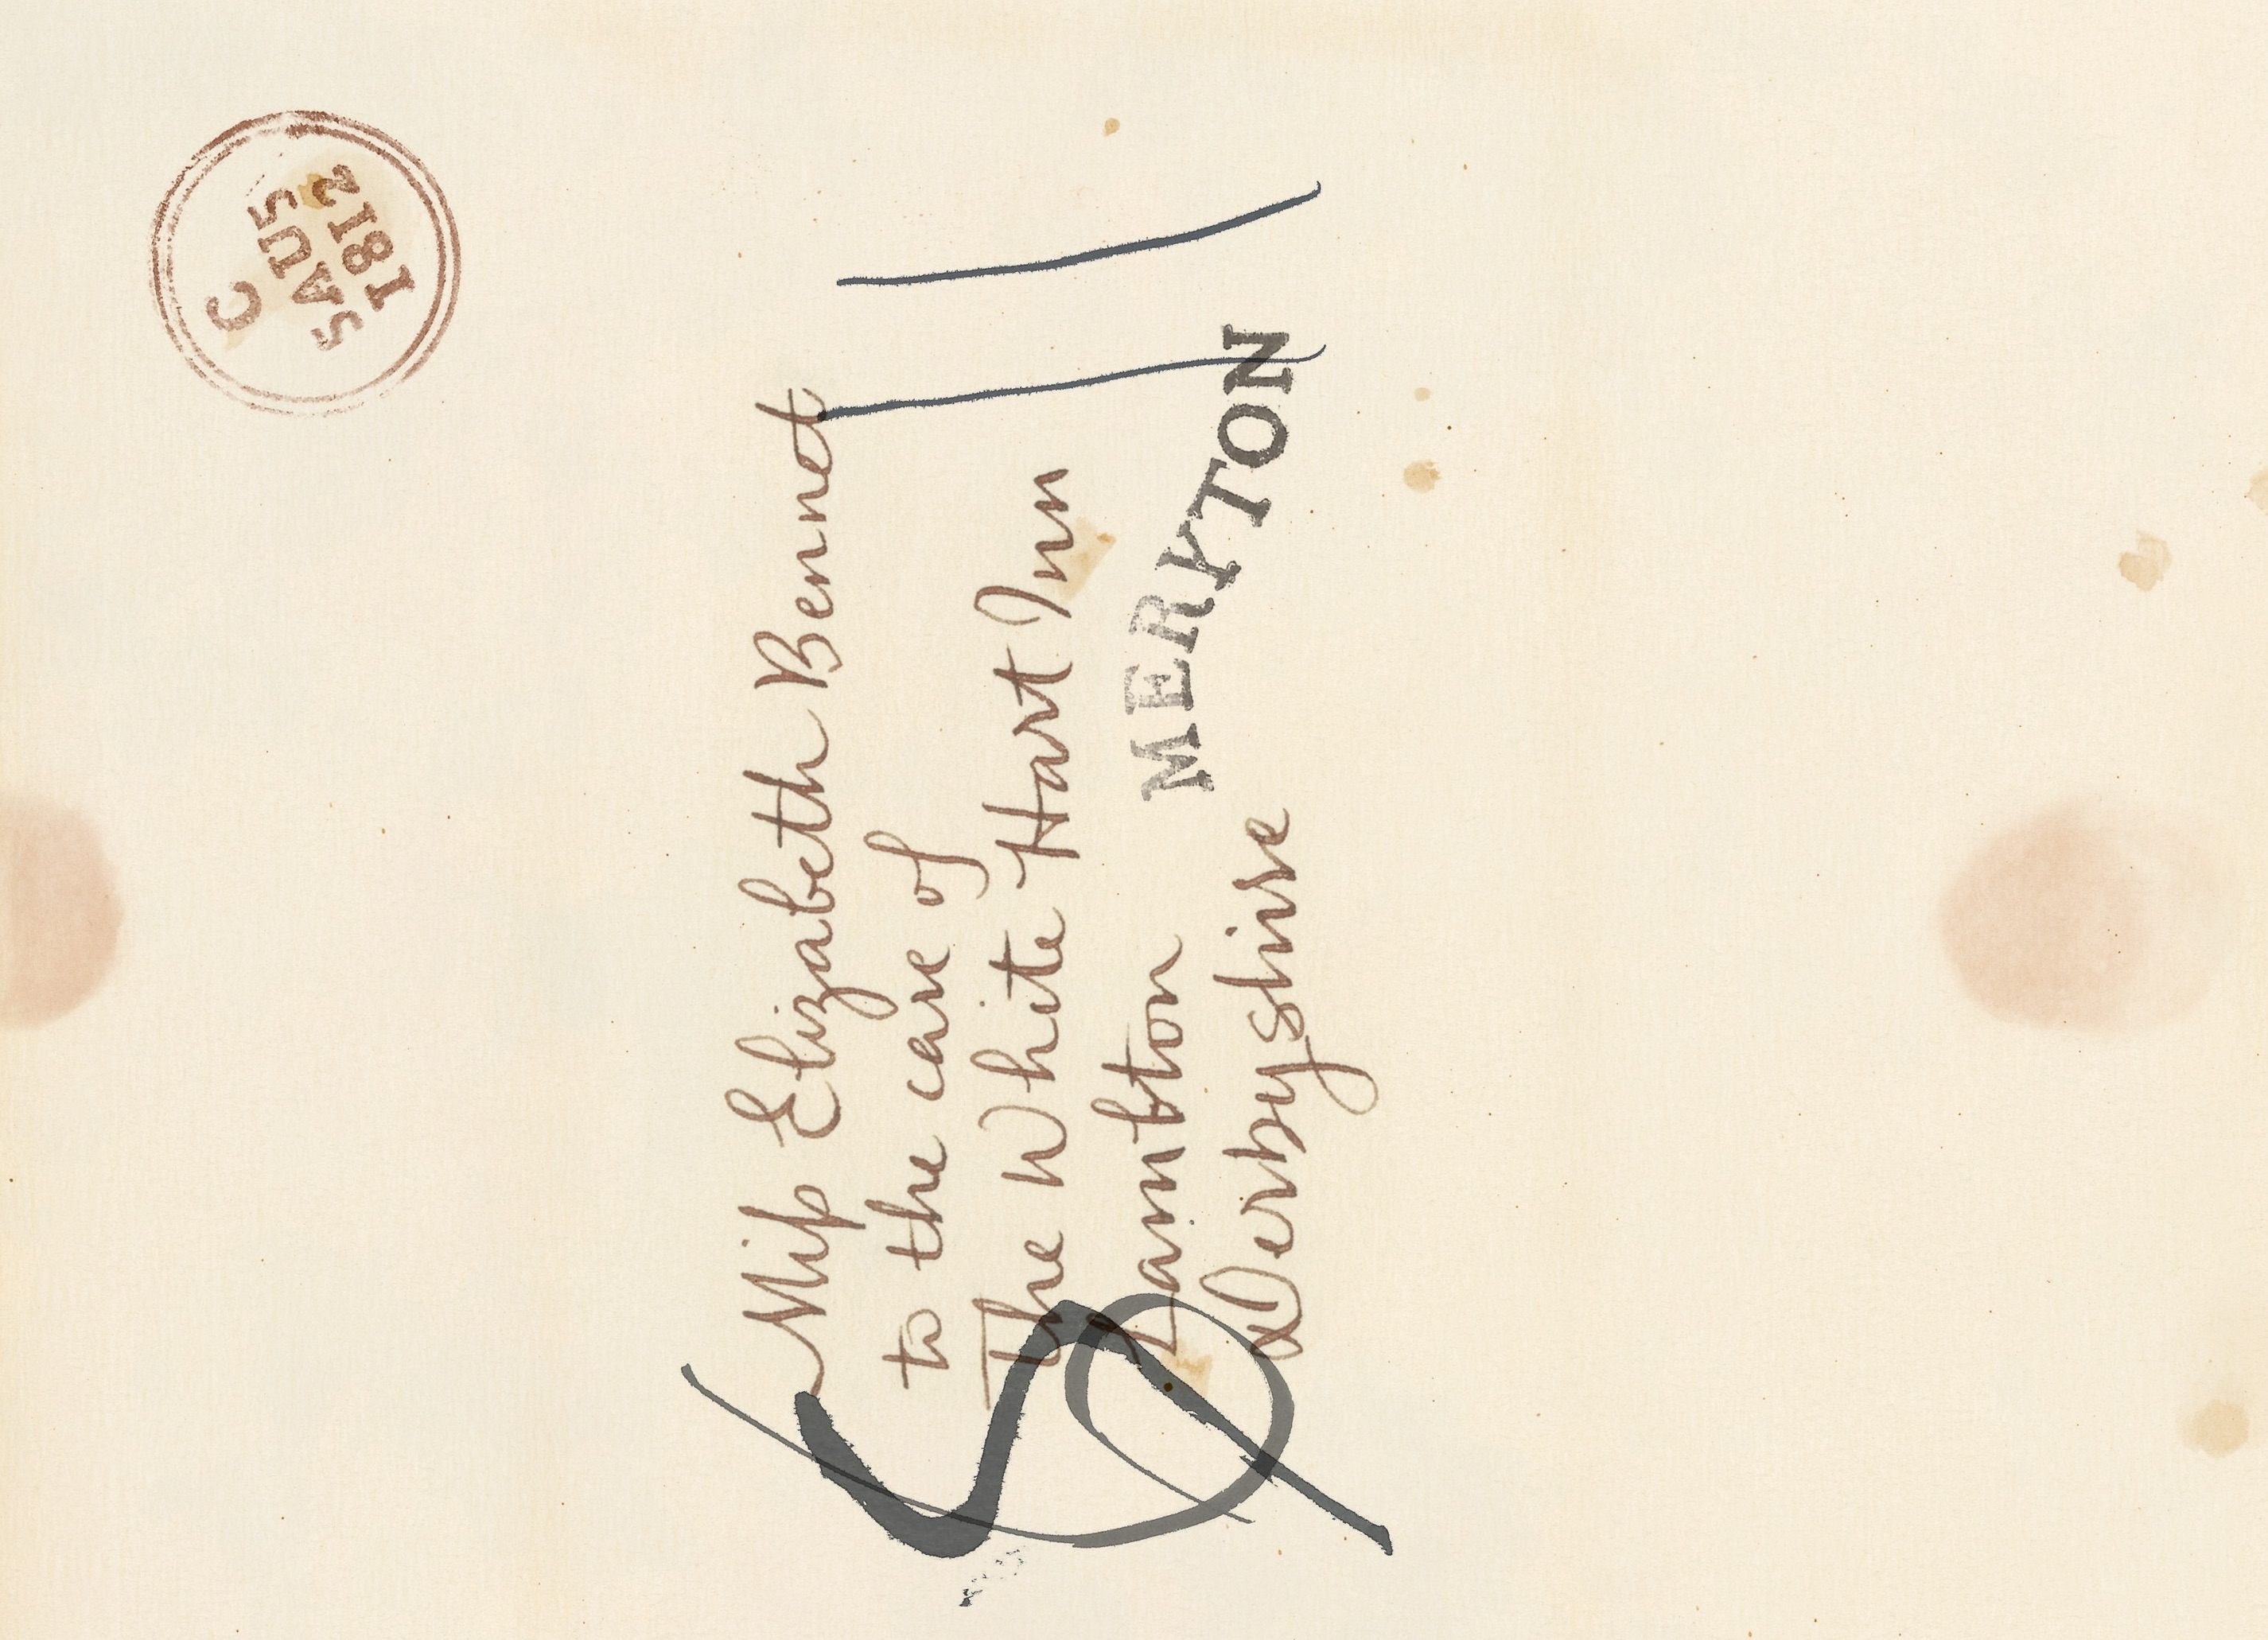 C
5AU5
1812
Miſs Elizabeth Bennet
to the care of
The White Hart Inn
Lambton
Derbyshire
MERYTON